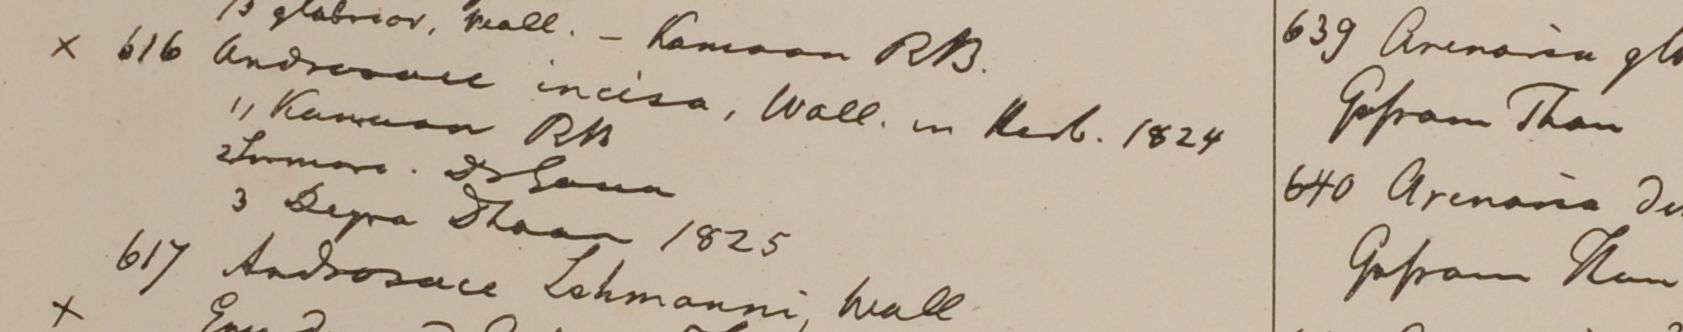 β glabrior, Wall. – Kamaon RB.
× 616 Androsace incisa, Wall. in Herb. 1824
" Kamaon RB
2 Sirmore. Dr Govan
3 Deyra Dhoon 1825
617 Androsace Lehmanni, Wall
×
639 Arenaria glo
Gossam Than
640 Arenaria de
Gossam Than